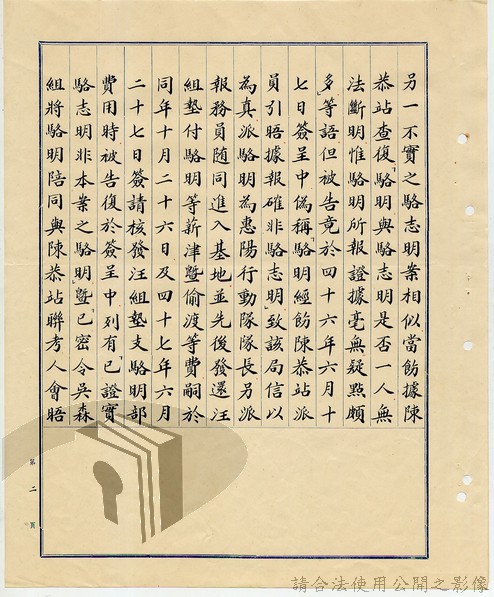 另一不實之駱志明案相似當飭據陳
恭站查復「駱明與駱志明是否一人無
法斷明惟駱明所報證據毫無疑點頗
多」等語但被告竟於四十六年六月十
七日簽呈中偽稱「駱明經飭陳恭站派
員引晤據報確非駱志明」致該局信以
為真派駱明為惠陽行動隊隊長另派
報務員隨同進入基地並先後發還汪
組墊付駱明等薪津暨偷渡等費嗣於
同年十月二十六日及四十七年六月
二十七日簽請核發汪組墊支駱明部
費用時被告復於簽呈中列有「已證實
駱志明非本案之駱明」暨「已密令吳森
組將駱明陪同與陳恭站聯考人會晤
第二頁
請合法使用公開之影像